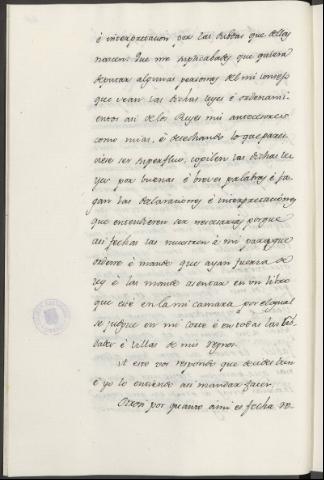 é interpretacion por las dubdas que dellas
nascen que me suplicabades que quisiera
deputar algunas personas del mi consejo
que vean las dichas leyes é ordenami-
entos asi de los Reyes mis antecesores
como mias, é desechando lo que pares-
ciere ser superfluo, copilen las dichas le-
yes por buenas é breves palabras é fa-
gan las declaraciones é interpretaciones
que entendieren ser necesarias porque
asi fechas las muestren á mi para que
ordene é mande que ayan fuerza de
ley é las mande asentar en un libro
que esté en la mi camara por el qual
se judgue en mi corte é en todas las Cib-
dades é villas de mis regnos.
A esto vos respondo que decides bien
é yo lo entiendo asi mandar facer.
Otrosi por quanto á mi es fecha re-